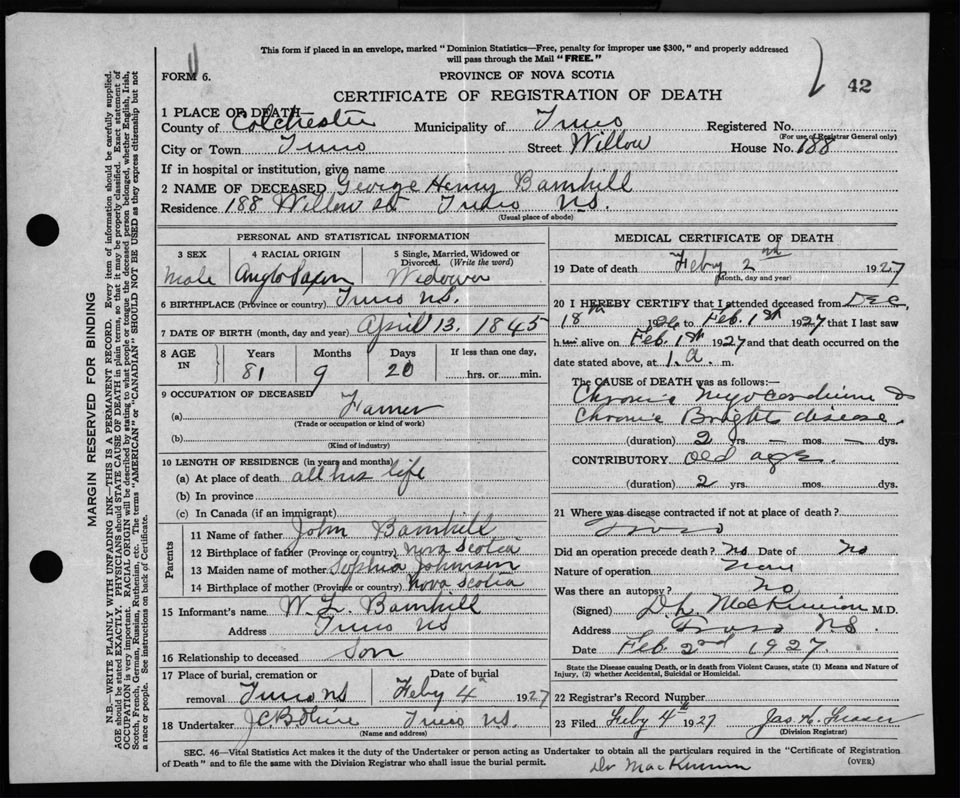 This form if placed in an envelope, marked "Dominion Statistics—Free, penalty for improper use $300," and properly addressed
will pass through the Mail "FREE."
FORM 6.
PROVINCE OF NOVA SCOTIA
42
CERTIFICATE OF REGISTRATION OF DEATH
1 PLACE OF DEATH—
County of Colchester Municipality of Truro Registered No.
(For use of Registrar General only)
City or Town Truro Street Willow House No. 188
If in hospital or institution, give name
2 NAME OF DECEASED George Henry Barnhill
Residence 188 Willow St Truro N.S.
(Usual place of abode)
PERSONAL AND STATISTICAL INFORMATION
3 SEX 4 RACIAL ORIGIN 5 Single, Married, Widowed or
Divorced. (Write the word)
Male Anglo Saxon Widower
6 BIRTHPLACE (Province or country) Truro N.S.
7 DATE OF BIRTH (month, day and year) April 13. 1845
8 AGE IN Years Months Days If less than one day,
81 9 20 hrs. or min.
9 OCCUPATION OF DECEASED
(a) Farmer
(Trade or occupation or kind of work)
(b)
(Kind of industry)
10 LENGTH OF RESIDENCE (in years and months)
(a) At place of death all his life
(b) In province
(c) In Canada (if an immigrant)
Parents
11 Name of father John Barnhill
12 Birthplace of father (Province or country) Nova Scotia
13 Maiden name of mother Sophia Johnson
14 Birthplace of mother (Province or country) Nova Scotia
15 Informant's name W. L. Barnhill
Address Truro NS
16 Relationship to deceased Son
17 Place of burial, cremation or Date of burial
removal Truro NS Feby 4th 1927
18 Undertaker Truro N.S.
(Name and address)
MEDICAL CERTIFICATE OF DEATH
19 Date of death Feby 2nd 1927
(Month, day and year)
20 I HEREBY CERTIFY that I attended deceased from Dec.
18th 1926 to Feb. 1st 1927 that I last saw
him alive on Feb. 1st 1927 and that death occurred on the
date stated above, at 1. a. m.
The CAUSE of DEATH was as follows:—
Chronic Myocardium &
Chronic Brights disease.
(duration) 2 yrs. — mos. — dys.
CONTRIBUTORY old age.
(duration) 2 yrs. mos. dys.
21 Where was disease contracted if not at place of death?
Truro
Did an operation precede death? No Date of No
Nature of operation None
Was there an autopsy? No
(Signed) D. L. MacKinnon M.D.
Address Truro N.S.
Date Feb. 2nd 1927.
State the Disease causing Death, or in death from Violent Causes, state (1) Means and Nature of
Injury, (2) whether Accidental, Suicidal or Homicidal.
22 Registrar's Record Number
23 Filed Feby 4th 1927 Jas. A. Fraser
(Division Registrar)
SEC. 46—Vital Statistics Act makes it the duty of the Undertaker or person acting as Undertaker to obtain all the particulars required in the "Certificate of Registration
of Death" and to file the same with the Division Registrar who shall issue the burial permit.
(OVER)
Dr MacKinnon
MARGIN RESERVED FOR BINDING
N.B.—WRITE PLAINLY WITH UNFADING INK—THIS IS A PERMANENT RECORD. Every item of information should be carefully supplied.
AGE should be stated EXACTLY. PHYSICIANS should STATE CAUSE OF DEATH in plain terms, so that it may be properly classified. Exact statement of
OCCUPATION is very important. RACIAL ORIGIN will be described by stating to what people or tongue the deceased person belonged, whether English, Irish,
Scotch, French, German, Russian, Ruthenian, etc. The terms "AMERICAN" or "CANADIAN" SHOULD NOT BE USED as they express citizenship but not
a race or people. See instructions on back of Certificate.